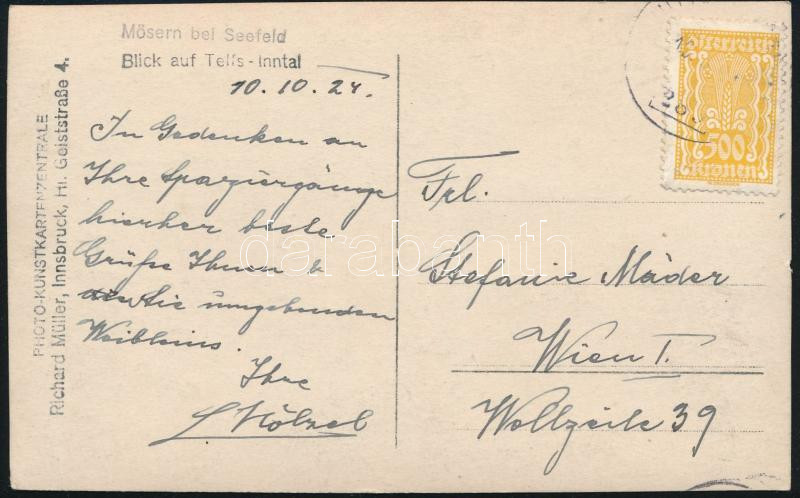 Mösern bei Seefeld
Blick auf Telfs-Inntal
10.10.24.
In Gedenken an
Ihre Spaziergänge
hierher beste
Grüße Ihnen &
Sie umgebenden
Weibleins.
Ihre
PHOTO-KUNSTKARTENZENTRALE
Richard Müller, Innsbruck, Hl. Geiststraße 4.
Österreich
500
Kronen
Frl.
Stefanie Mäder
Wien I.
Wollzeile 39
darabanth